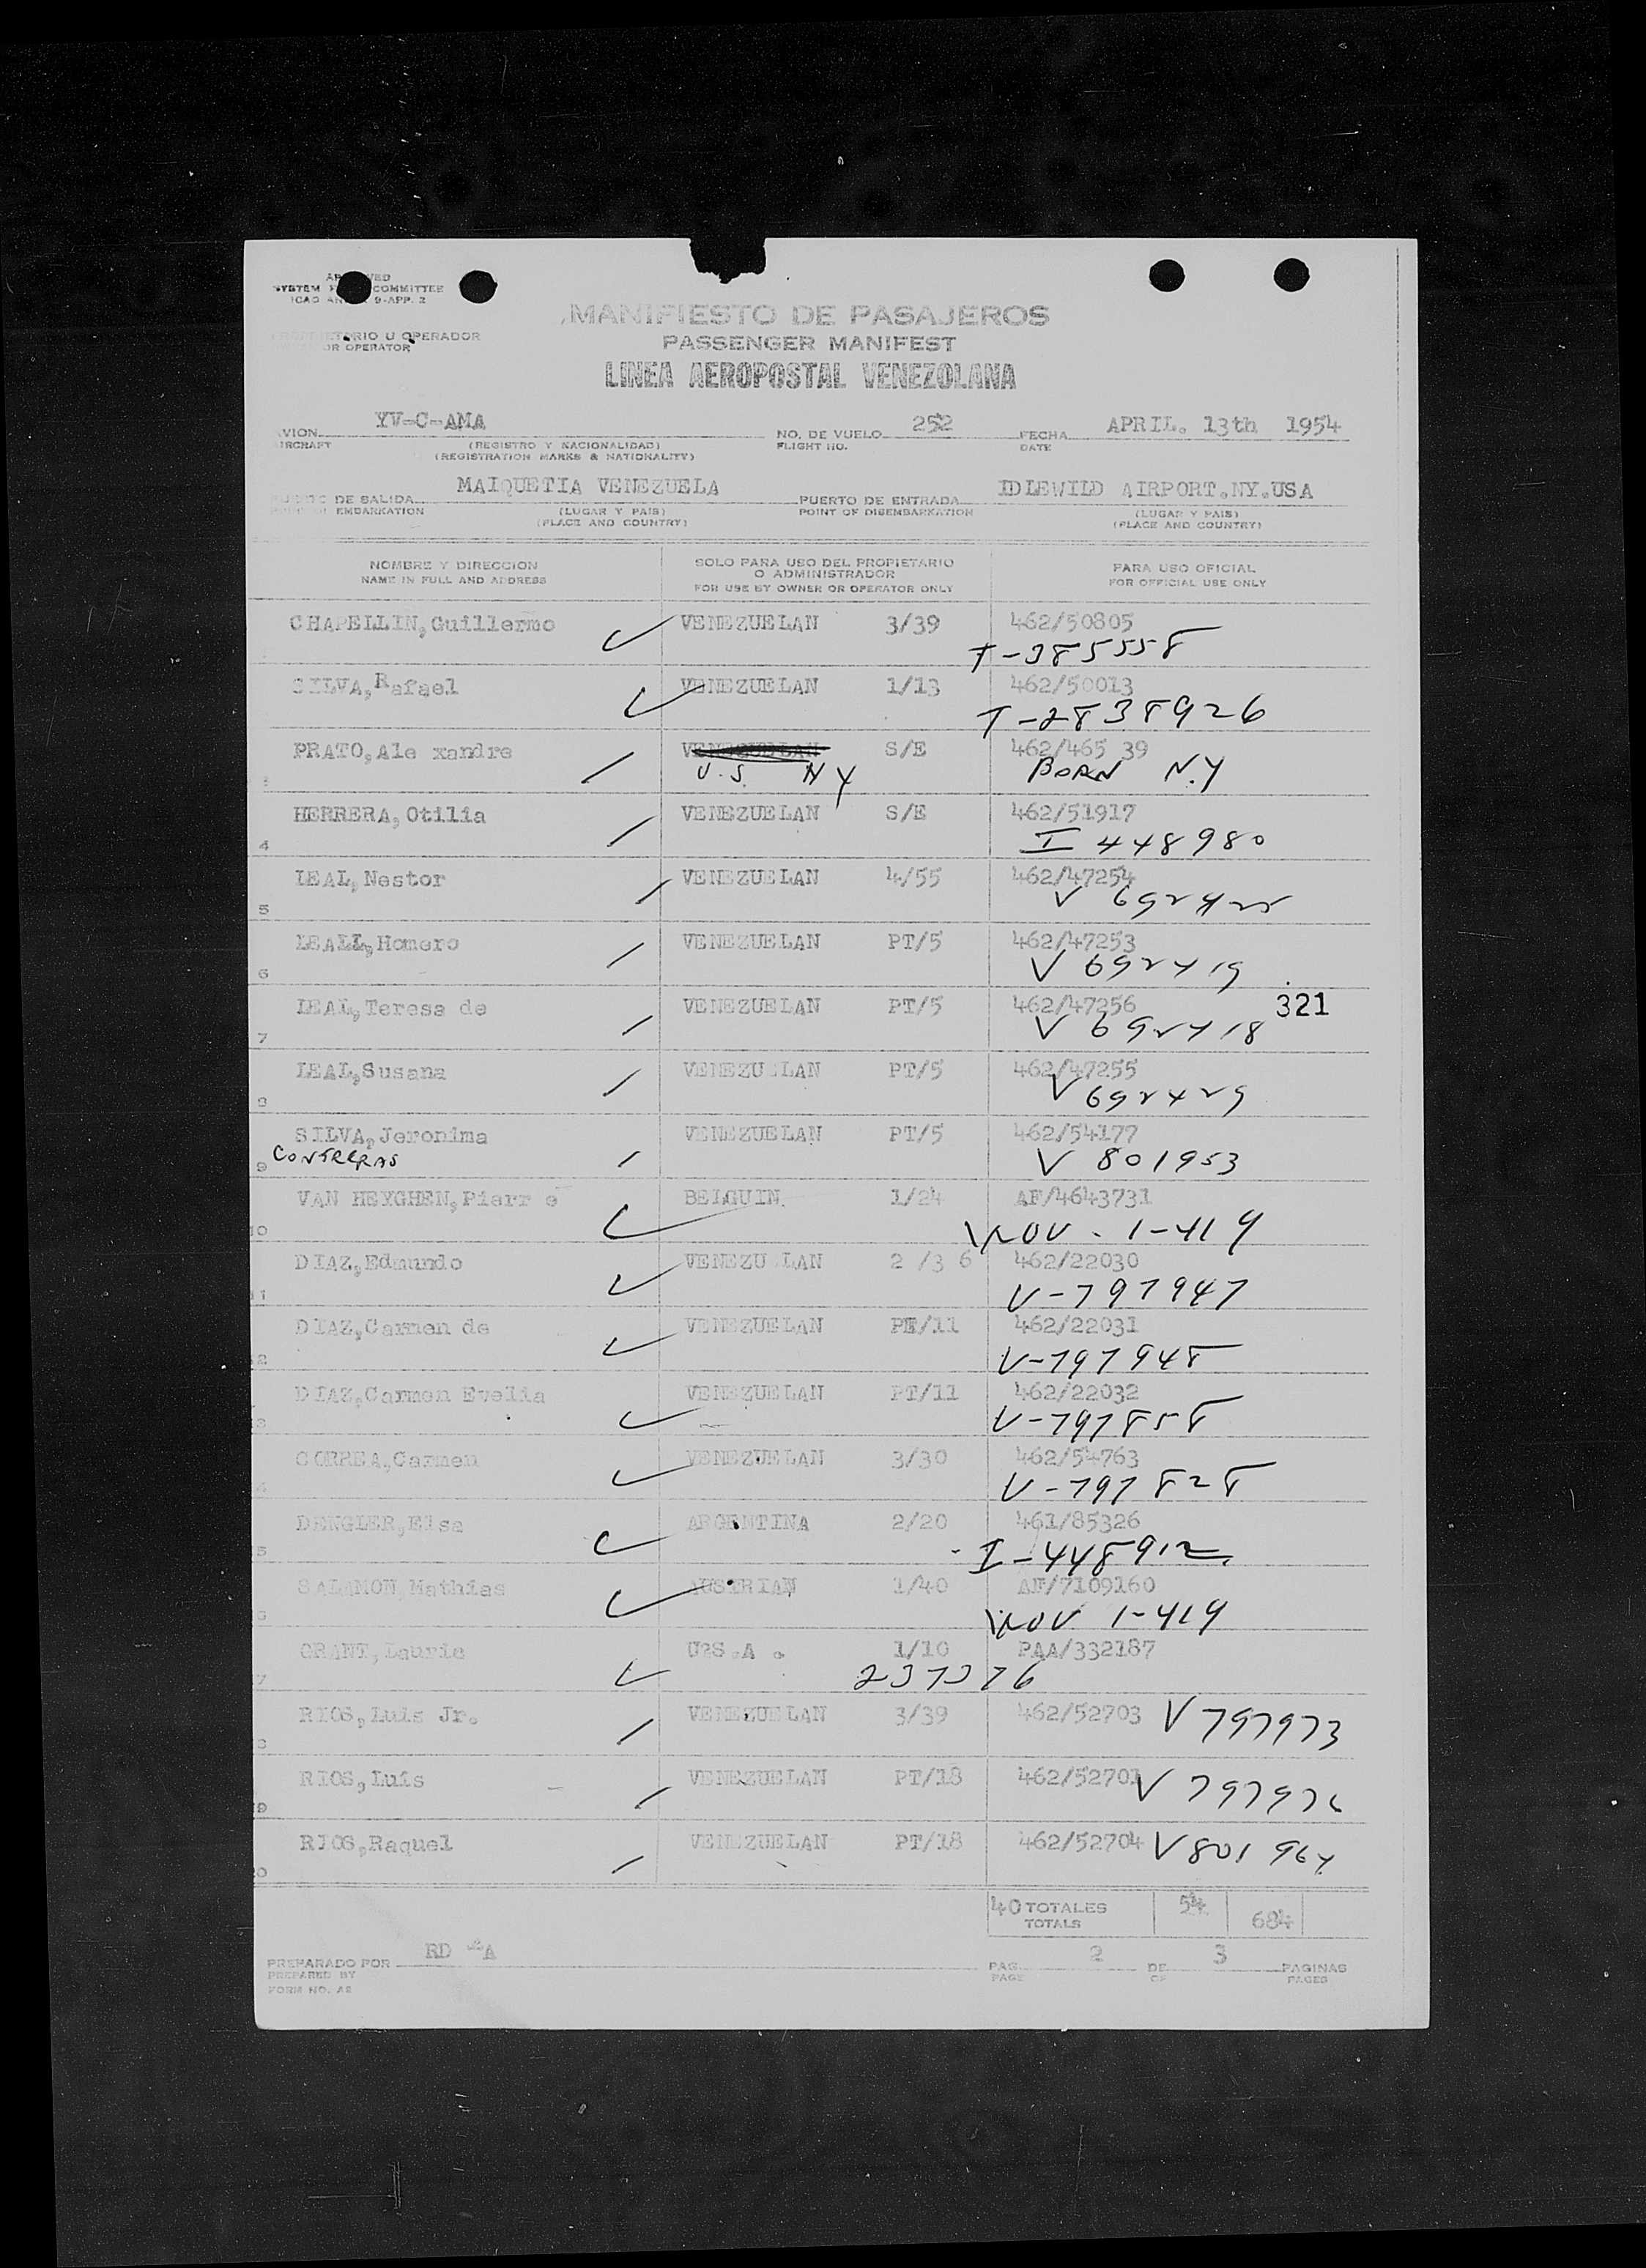 SYSTEM COMMITTEE
ICAO 9-APP. 2
MANIFIESTO DE PASAJEROS
U OPERADOR
OR OPERATOR
PASSENGER MANIFEST
LINEA AEROPOSTAL VENEZOLANA
AVION YV-C-AMA NO. DE VUELO 252 FECHA APRIL. 13th 1954
AIRCRAFT (REGISTRO Y NACIONALIDAD) FLIGHT NO. DATE
(REGISTRATION MARKS & NATIONALITY)
DE SALIDA MAIQUETIA VENEZUELA PUERTO DE ENTRADA IDLEWILD AIRPORT.NY.USA
EMBARKATION (LUGAR Y PAIS) POINT OF DISEMBARKATION (LUGAR Y PAIS)
(PLACE AND COUNTRY) (PLACE AND COUNTRY)
NOMBRE Y DIRECCION SOLO PARA USO DEL PROPIETARIO PARA USO OFICIAL
NAME IN FULL AND ADDRESS O ADMINISTRADOR FOR OFFICIAL USE ONLY
FOR USE BY OWNER OR OPERATOR ONLY
CHAPELLIN,Guillermo VENEZUELAN 3/39 462/50805
T-385558
SILVA,Rafael VENEZUELAN 1/13 462/50013
T-2838926
PRATO,Ale xandre VENEZUELAN S/E 462/465 39
U.S. NY BORN N.Y
HERRERA,Otilia VENEZUELAN S/E 462/51917
4 I 448980
LEAL,Nestor VENEZUELAN 4/55 462/47254
5 V 692425
LEALL,Homero VENEZUELAN PT/5 462/47253
6 V 692419
LEAL,Teresa de VENEZUELAN PT/5 462/47256 321
7 V 692418
LEAL,Susana VENEZUELAN PT/5 462/47255
8 V 692429
SILVA,Jeronima VENEZUELAN PT/5 462/54177
9 CONTRERAS V 801953
VAN HEYGHEN,Piarr e BELGUIN. 1/24 AF/4643731
10 NOV. 1-419
DIAZ,Edmundo VENEZU LAN 2 /3 6 462/22030
11 V-797947
DIAZ,Carmen de VENEZUELAN PT/11 462/22031
2 V-797948
DIAZ,Carmen Evelia VENEZUELAN PT/11 462/22032
3 V-797858
CORREA,Carmen VENEZUELAN 3/30 462/54763
4 V-797828
DENGLER,Elsa ARGENTINA 2/20 461/85326
5 I-448912
SALAMON,Mathias AUSTRIAN 1/40 AF/7109160
6 NOV 1-419
GRANT,Laurie U?S.A . 1/10 PAA/332187
7 237376
RIOS,Luis Jr. VENEZUELAN 3/39 462/52703 V 797973
8
RIOS,Luis VENEZUELAN PT/18 462/52701 V 797976
9
RIOS,Raquel VENEZUELAN PT/18 462/52704 V801964
0
40 TOTALES 54 684
TOTALS
PREPARADO POR RD PAG. 2 DE 3 PAGINAS
PREPARED BY PAGE OF PAGES
FORM NO. A2